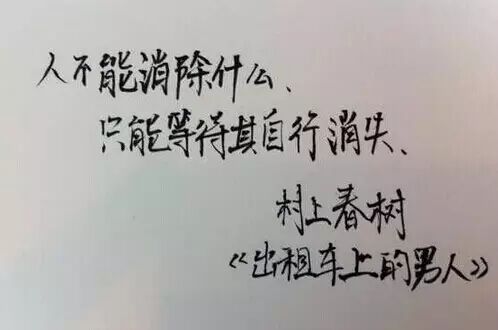 人不能消除什么、
只能等待其自行消失、
村上春树
《出租车上的男人》